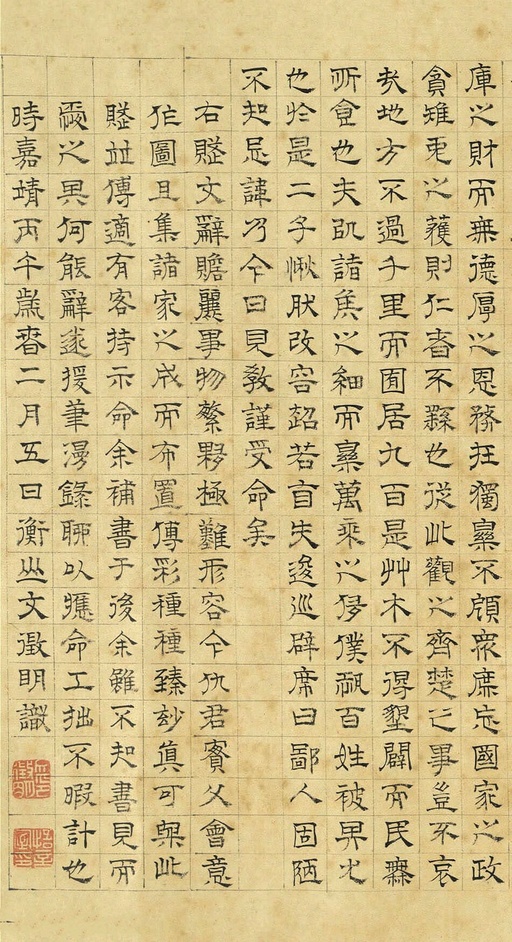 庫之財而無德厚之恩務在獨樂不顧衆庶忘國家之政
貪雉兔之獲則仁者不繇也從此觀之齊楚之事豈不哀
哉地方不過千里而囿居九百是艸木不得墾闢而民無
所食也夫以諸侯之細而樂萬乘之侈僕恐百姓被其尤
也於是二子愀然改容超若自失逡巡辟席曰鄙人固陋
不知忌諱乃今日見教謹受命矣
右賦文辭贍麗事物繁夥極難形容今仇君實父會意
作圖且集諸家之成而布置傅彩種種臻玅真可與此
賦並傳適有客持示命余補書于後余雖不知書見而
之異何能辭遂援筆漫錄聊以應命工拙不暇計也
時嘉靖丙午歲春二月五日衡山文徵明識